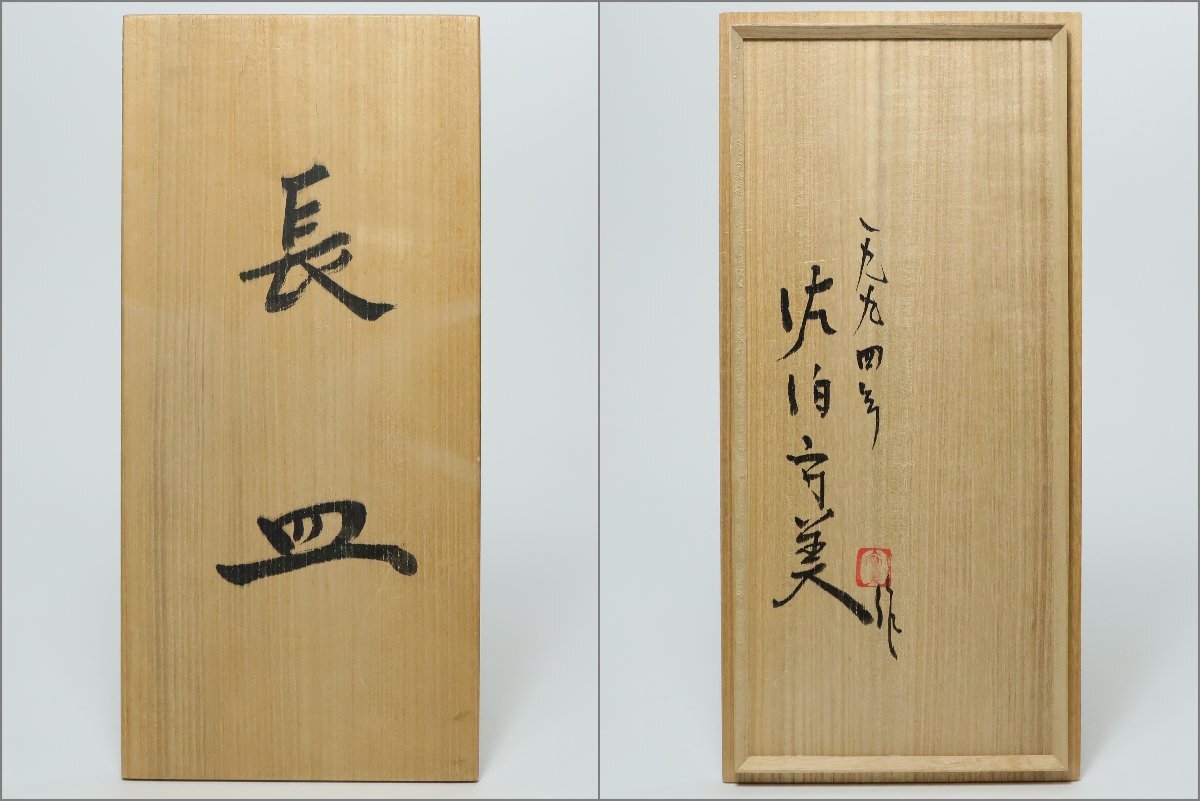 長皿
一九九四年
佐伯守美作